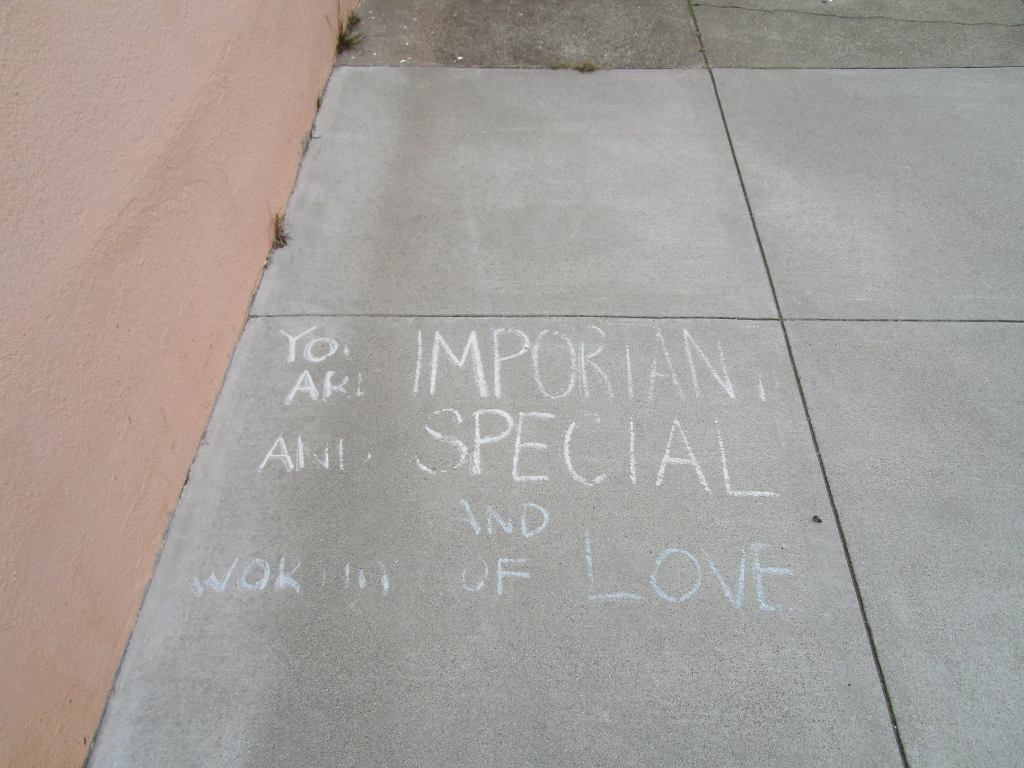 YOU
ARE IMPORTANT
AND SPECIAL
AND
WORTHY OF LOVE